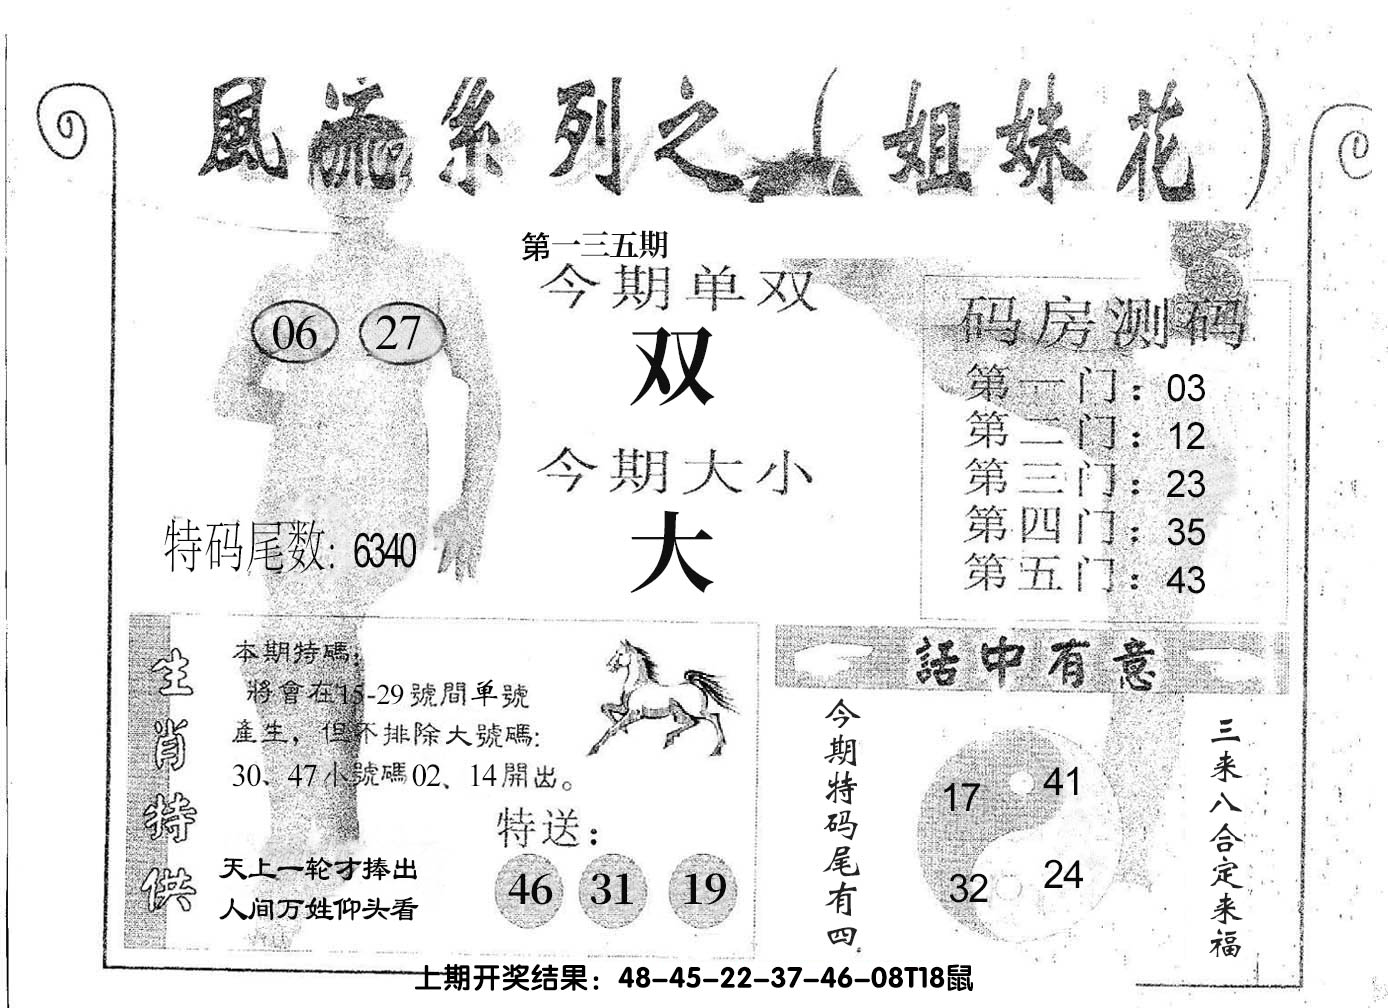 風流系列之（姐妹花）
第一三五期
今期单双
双
今期大小
大
06 27
特码尾数: 6340
码房测码
第一门：03
第二门：12
第三门：23
第四门：35
第五门：43
生肖特供
本期特碼，
將會在15-29號間单號
產生，但不排除大號碼:
30、47小號碼02、14開出。
特送：
46 31 19
天上一轮才捧出
人间万姓仰头看
話中有意
今期特码尾有四
17 41
32 24
三来八合定来福
上期开奖结果：48-45-22-37-46-08T18鼠